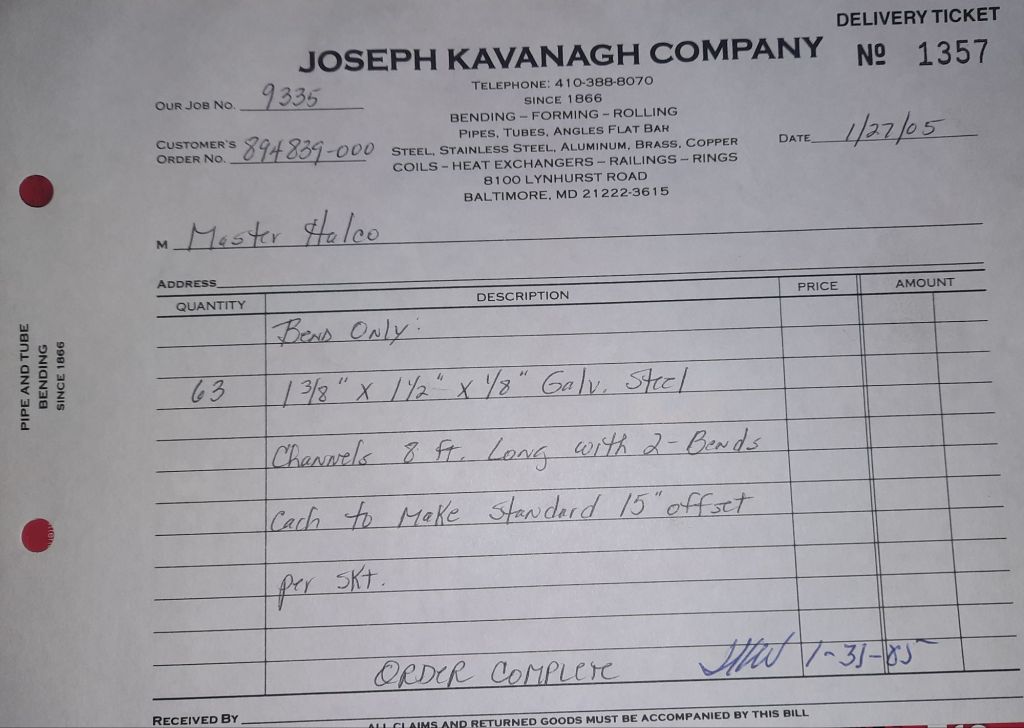 DELIVERY TICKET
JOSEPH KAVANAGH COMPANY
Nº 1357
TELEPHONE: 410-388-8070
SINCE 1866
BENDING – FORMING – ROLLING
PIPES, TUBES, ANGLES FLAT BAR
STEEL, STAINLESS STEEL, ALUMINUM, BRASS, COPPER
COILS – HEAT EXCHANGERS – RAILINGS – RINGS
8100 LYNHURST ROAD
BALTIMORE, MD 21222-3615
OUR JOB NO. 9335
CUSTOMER'S
ORDER NO. 894839-000
DATE 1/27/05
M Master Halco
ADDRESS
QUANTITY DESCRIPTION PRICE AMOUNT
Bend Only:
63 1 3/8" X 1 1/2" X 1/8" Galv. Steel
Channels 8 ft. Long with 2-Bends
Each to Make Standard 15" offset
per SKt.
ORDER COMPLETE 1-31-05
RECEIVED BY
ALL CLAIMS AND RETURNED GOODS MUST BE ACCOMPANIED BY THIS BILL
PIPE AND TUBE
BENDING
SINCE 1866